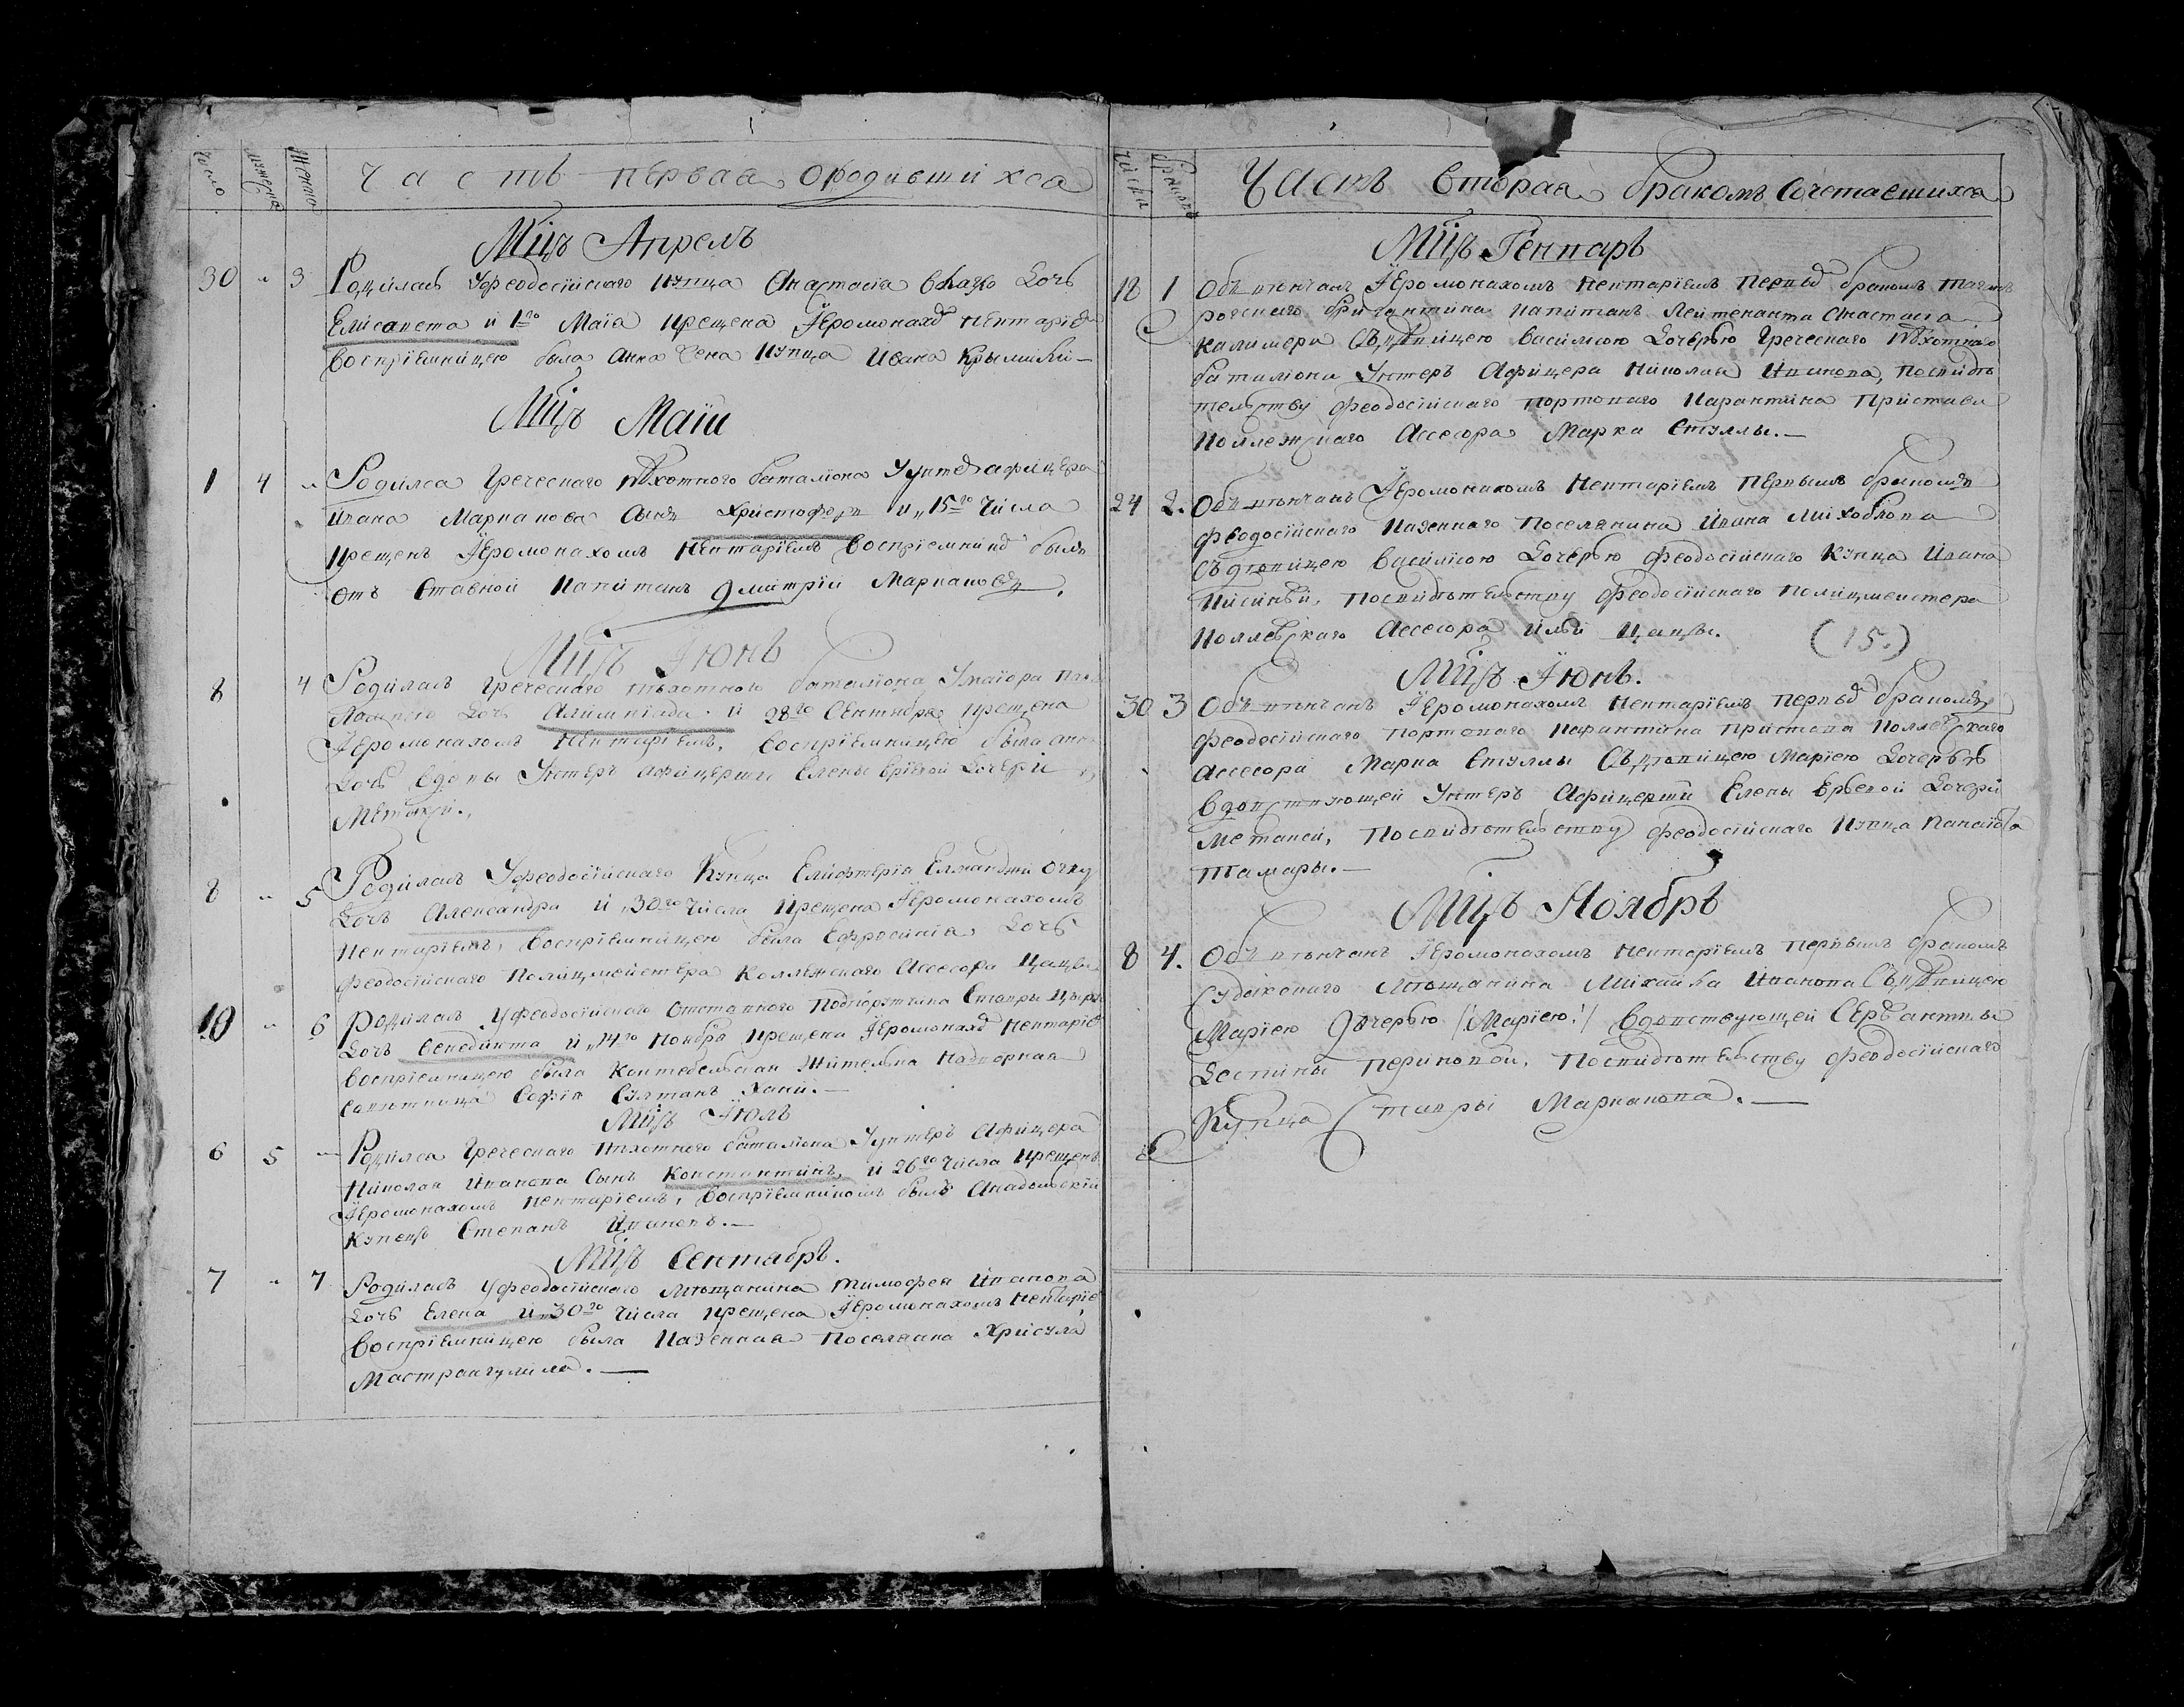 число
мужеска
женска
Часть первая ородившихся
Мцъ Апрель
30 " 3 Родилась Уфеодосійскаго купца Анастасіа Дочь
Елисавета и 1го Маіа крещена Іеромонахо Нектаріе
Воспріемницею была Анна Жена купца Ивана
Мцъ Маіи
1 4 " Родился Греческого пѣхотного баталіона Уунтеръ афицера
Ивана Марканова Сынъ Христофоръ и "15го Числа
Крещенъ Іеромонахомъ Нектаріемъ Воспріемнико былъ
отъ Ставной Капитанъ Дмитріи Маркановъ
Мцъ Іюнь
8 4 Родилась Греческаго пѣхотного баталіона Умаіора
Дочь Алимпіада и 28го Сентября крещена
Іеромонахомъ Нектаріемъ, Воспріемницею была Анна
Дочь Вдовы Унтеръ афицерши Елены Дочери
8 " 5 Родилась Уфеодосійскаго Купца Елифтеріа
Дочь Александра и "30го Числа Крещена Іеромонахомъ
Нектаріемъ, Воспріемницею была Ефросиніа Дочь
феодосійскаго Полицмейстера Коллежскаго Ассесора
10 " 6 Родилась Уфеодосійскаго Отставного Подпорутчика Ставры
Дочь и "14го Ноября крещена Іеромонахо Нектаріе
Воспріемницею была Жителька Надворнаа
Софіа Султанъ
Мцъ Іюль
6 5 " Родился Греческаго Пѣхотного баталіона Уунтеръ Афицера
Николаа Иванова Сынъ Константинъ, и 26го Числа Крещенъ
Іеромонахомъ Нектаріемъ, Воспріемникомъ былъ
Купецъ Степанъ Ивановъ.—
Мцъ Сентябрь.
7 " 7 Родилась Уфеодосійскаго Мѣщанина Тимофея Иванова
Дочь Елена и "30го Числа крещена Іеромонахомъ Нектаріе
Воспріемницею была Казеннаа Поселянка Хрисула
Мастрангулила.—
Часть Вторая бракомъ Сочетавшихся
Мцъ Генварь
12 1 Обвѣнчанъ Іеромонахомъ Нектаріемъ Первы бракомъ
бригантина Капитанъ Лейтенанта Анастаса
Калимери Съ Дѣвицею Василисою Дочерью Греческаго Пѣхотнаго
баталіона Унтеръ Афицера Николаа Иванова, Посвидѣ
тельству феодосійскаго Портоваго Карантина Пристава
Коллежскаго Ассесора Марка Стуллы.—
24 2. Обвѣнчанъ Іеромонахомъ Нектаріемъ Первымъ бракомъ
феодосійскаго Казеннаго Поселянина Ивана
Съ дѣвицею Василисою Дочерью феодосійскаго Купца Ивана
Посвидѣтельству феодосійскаго Полицмейстера
Коллежскаго Ассесора Ильи
(15.)
Мцъ Іюнь.
30 3 Обвѣнчанъ Іеромонахомъ Нектаріемъ Первы бракомъ
феодосійскаго Портоваго Карантина Пристава Коллежскаго
Ассесора Марка Стуллы Съ дѣвицею Маріею Дочерью
Вдовствующей Унтеръ Афицерши Елены Дочери
Посвидѣтельству феодосійскаго Купца
Тамары.—
Мцъ Ноябрь
8 4. Обвѣнчанъ Іеромонахомъ Нектаріемъ Первымъ бракомъ
Мѣщанина Михайла Иванова Съ Дѣвицею
Маріею Дочерью (Маріею!) Вдовствующей
Посвидѣтельству феодосійскаго
Купца Ставры Марканова.—